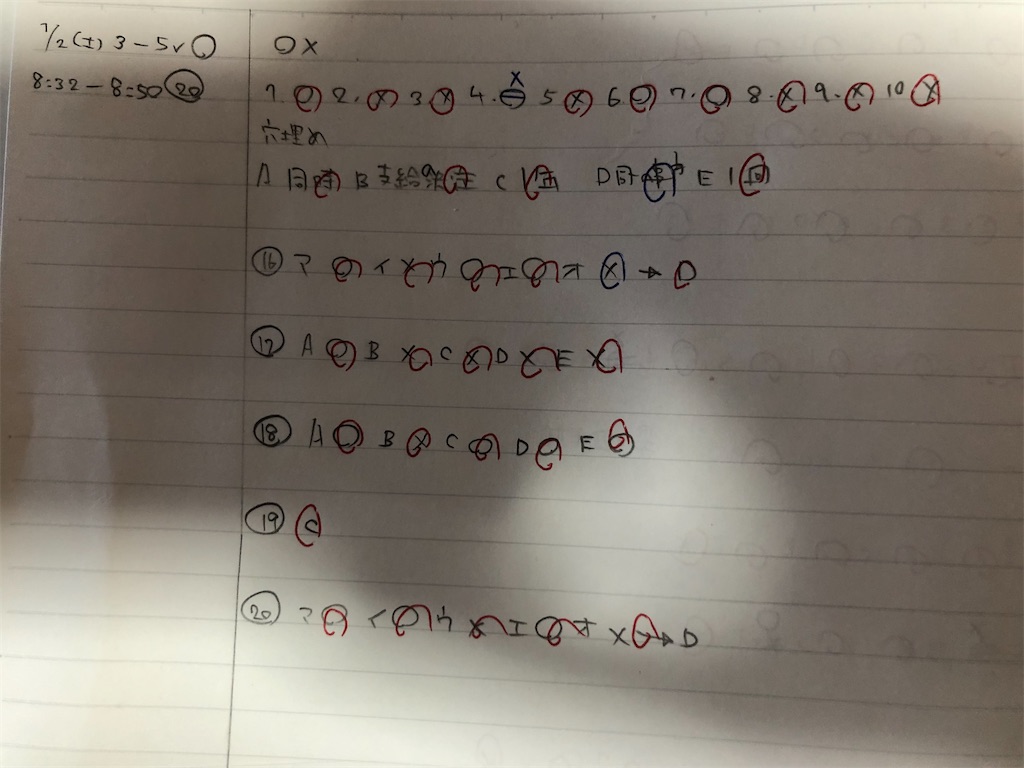 1/2(土) 3-5v〇
〇×
8:32-8:50 ⑳
1.〇 2.× 3× 4.〇× 5× 6.〇 7.〇 8.× 9.× 10×
穴埋め
A 同時 B 支給 C D E 1回
⑯ ア 〇 イ × ウ 〇 エ 〇 オ × → D
⑰ A 〇 B × C × D × E ×
⑱ A 〇 B × C 〇 D 〇 E
⑲ C
⑳ ア 〇 イ 〇 ウ × エ 〇 オ × → D